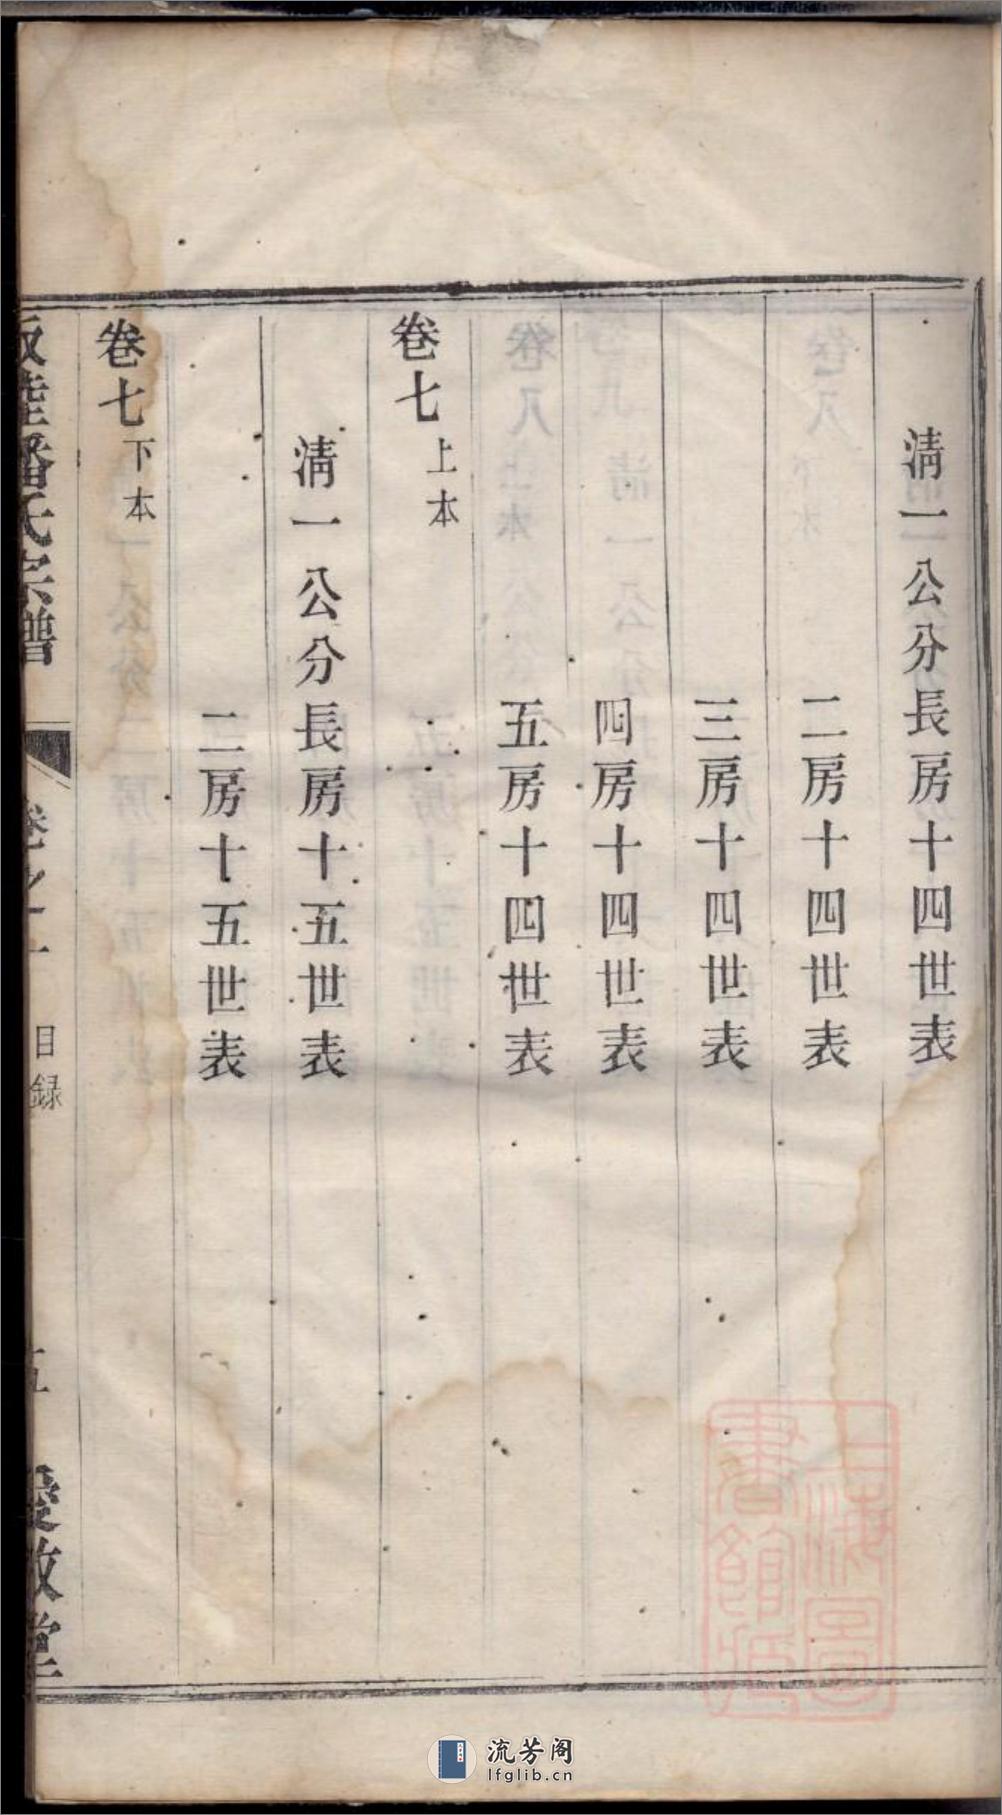 清二公分長房十四世表
二房十四世表
三房十四世表
四房十四世表
五房十四世表
卷七 上本
清一公分長房十五世表
二房十五世表
卷七 下本
潘氏宗譜 卷之一 目録 五 敦堂
上海圖
書館藏
流芳阁
lfglib.cn